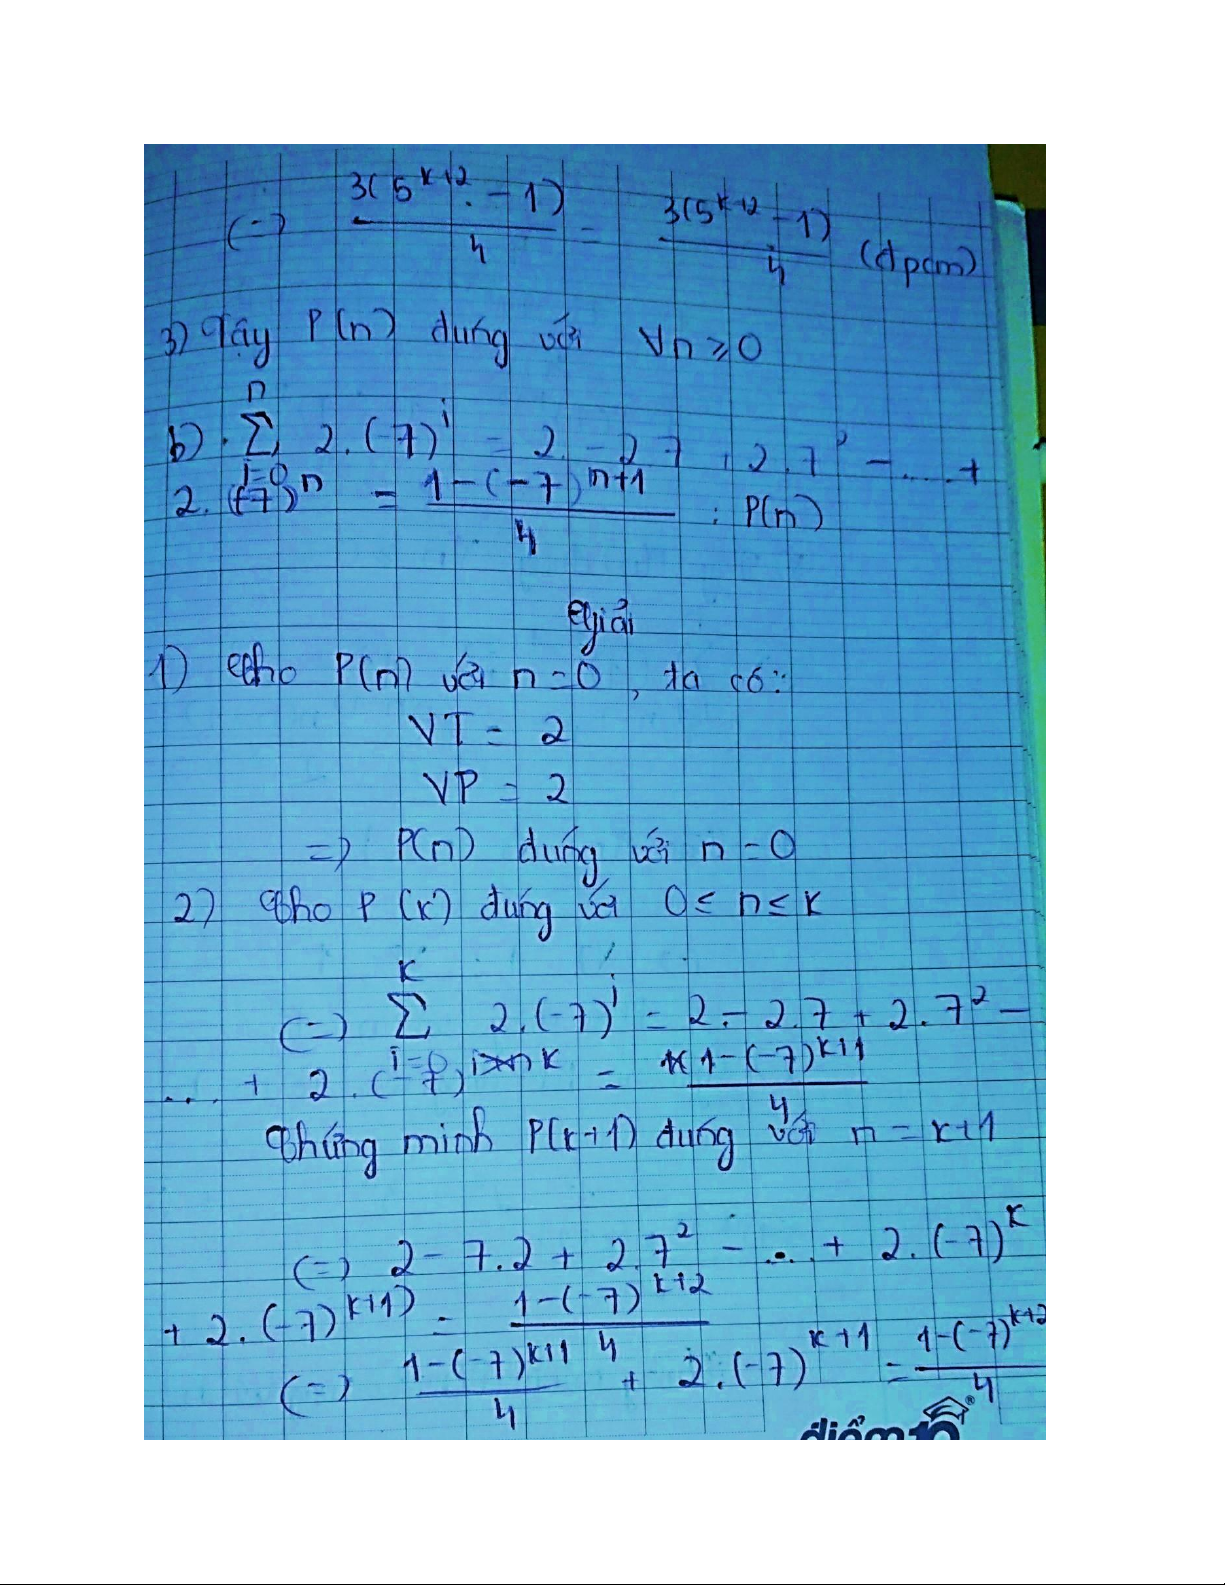 (=) 3(5^{k+2} - 1)/4 = 3(5^{k+2} - 1)/4 (đpcm)
3) Vậy P(n) đúng với ∀n ≥ 0
b) . Σ_{i=0}^{n} 2.(-7)^i = 2 - 2 7 + 2.7² - .... +
2.(-7)^n = 1-(-7)^{n+1}/4 : P(n)
Giải
1) Cho P(n) với n = 0, ta có:
VT = 2
VP = 2
=> P(n) đúng với n = 0
2) Cho P(k) đúng với 0 ≤ n ≤ k
(=) Σ_{i=0}^{k} 2.(-7)^i = 2 - 2.7 + 2.7² -
... + 2.(-7)^k = 1-(-7)^{k+1}/4
Chứng minh P(k+1) đúng với n = k+1
(=) 2 - 7.2 + 2.7² - ... + 2.(-7)^k
+ 2.(-7)^{k+1)} = 1-(-7)^{k+2}/4
(=) 1-(-7)^{k+1}/4 + 2.(-7)^{k+1} = 1-(-7)^{k+2}/4
điểm 10 ®